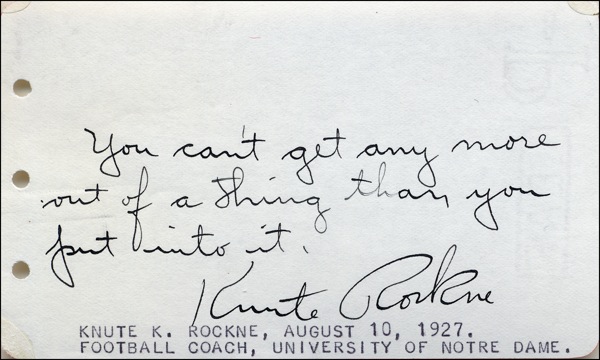 You can't get any more
out of a thing than you
put into it.
Knute Rockne
KNUTE K. ROCKNE, AUGUST 10, 1927.
FOOTBALL COACH, UNIVERSITY OF NOTRE DAME.